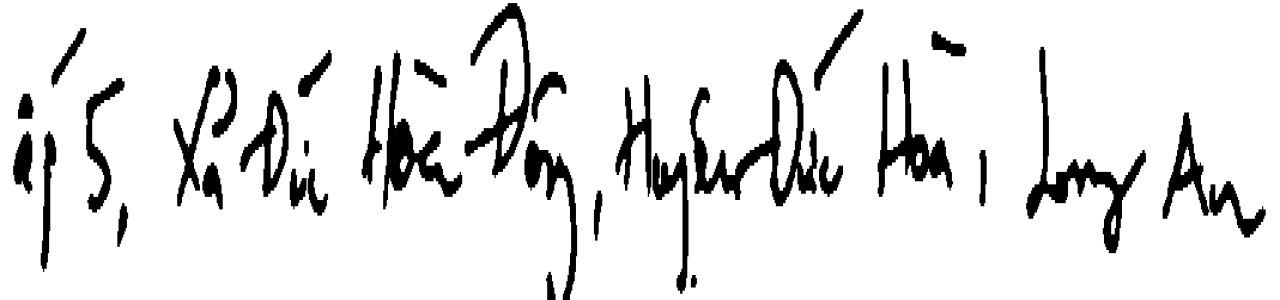 ấp 5, Xã Đức Hòa Đông, Huyện Đức Hòa, Long An